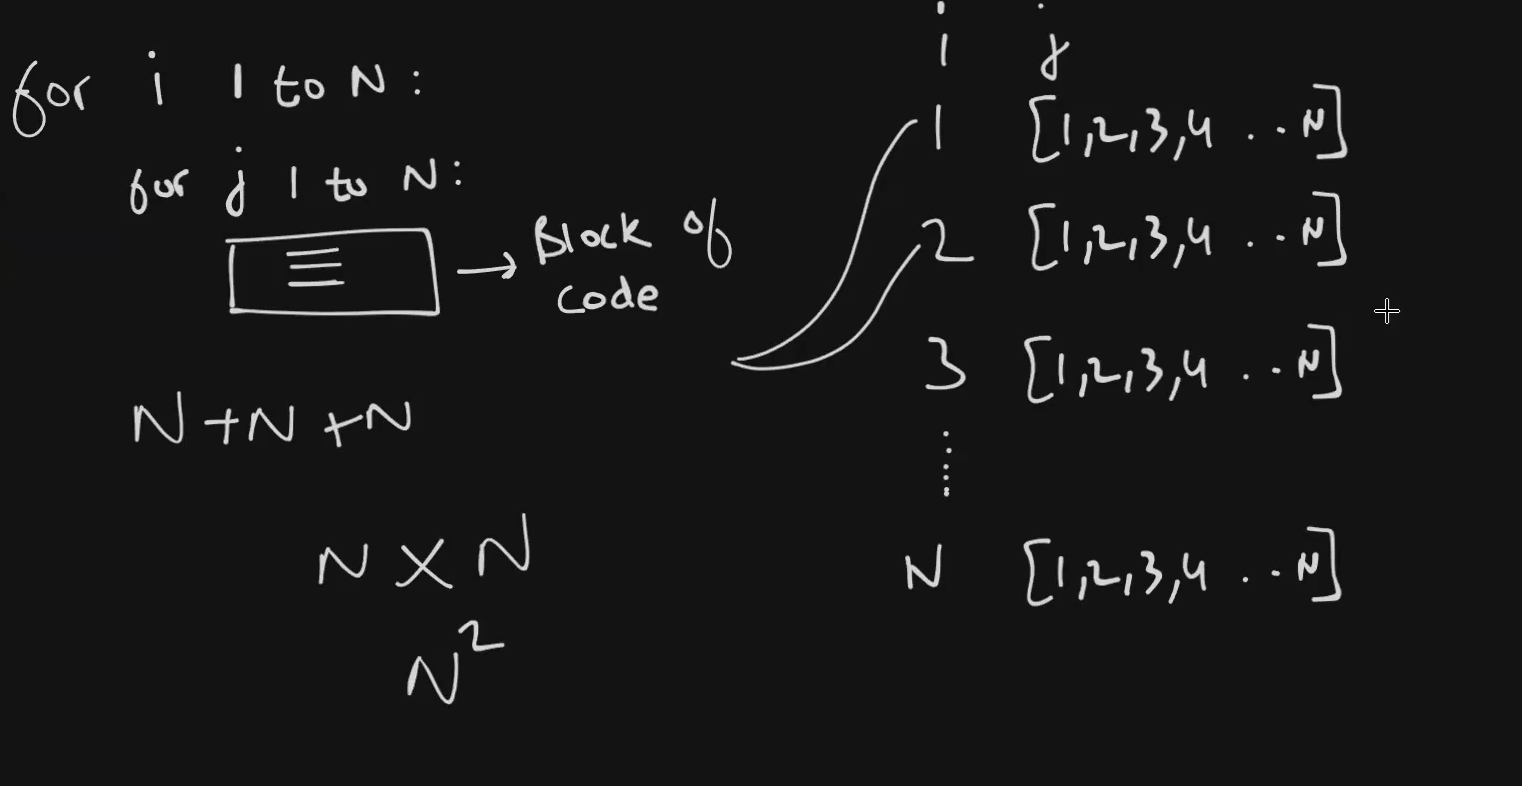 for i 1 to N:
for j 1 to N:
→ Block of
code
N+N+N
N×N
N²
i j
1 [1,2,3,4 ..N]
2 [1,2,3,4 ..N]
3 [1,2,3,4 ..N]
⋮
N [1,2,3,4 ..N]